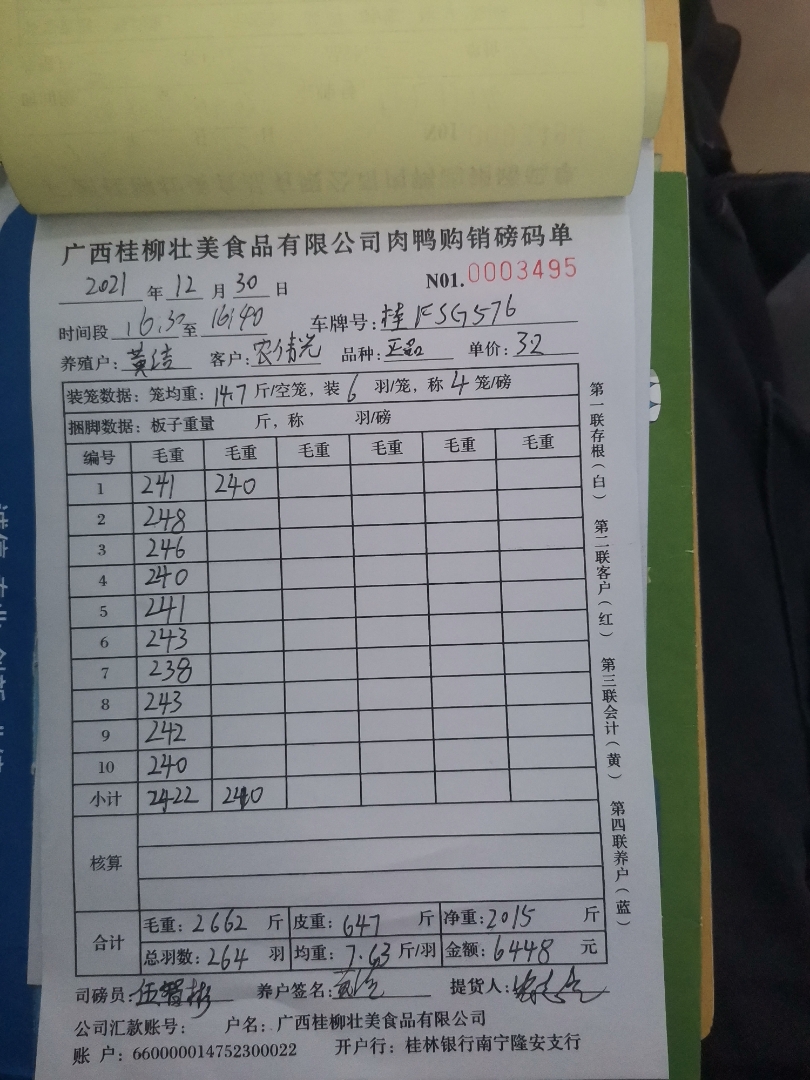 广西桂柳壮美食品有限公司肉鸭购销磅码单
2021 年 12 月 30 日 N01.0003495
时间段 16:30 至 16:40 车牌号: 桂FSG576
养殖户: 黄洁 客户: 农倩光 品种: 正品 单价: 3.2
装笼数据: 笼均重: 14.7 斤/空笼, 装 6 羽/笼, 称 4 笼/磅
捆脚数据: 板子重量 斤, 称 羽/磅
编号 毛重 毛重 毛重 毛重 毛重 毛重
1 241 240
2 248
3 246
4 240
5 241
6 243
7 238
8 243
9 242
10 240
小计 2422 240
核算
合计 毛重: 2662 斤 皮重: 647 斤 净重: 2015 斤
总羽数: 264 羽 均重: 7.63 斤/羽 金额: 6448 元
司磅员: 伍智彬 养户签名: 提货人:
公司汇款账号: 户名: 广西桂柳壮美食品有限公司
账 户: 660000014752300022 开户行: 桂林银行南宁隆安支行
第一联存根(白) 第二联客户(红) 第三联会计(黄) 第四联养户(蓝)